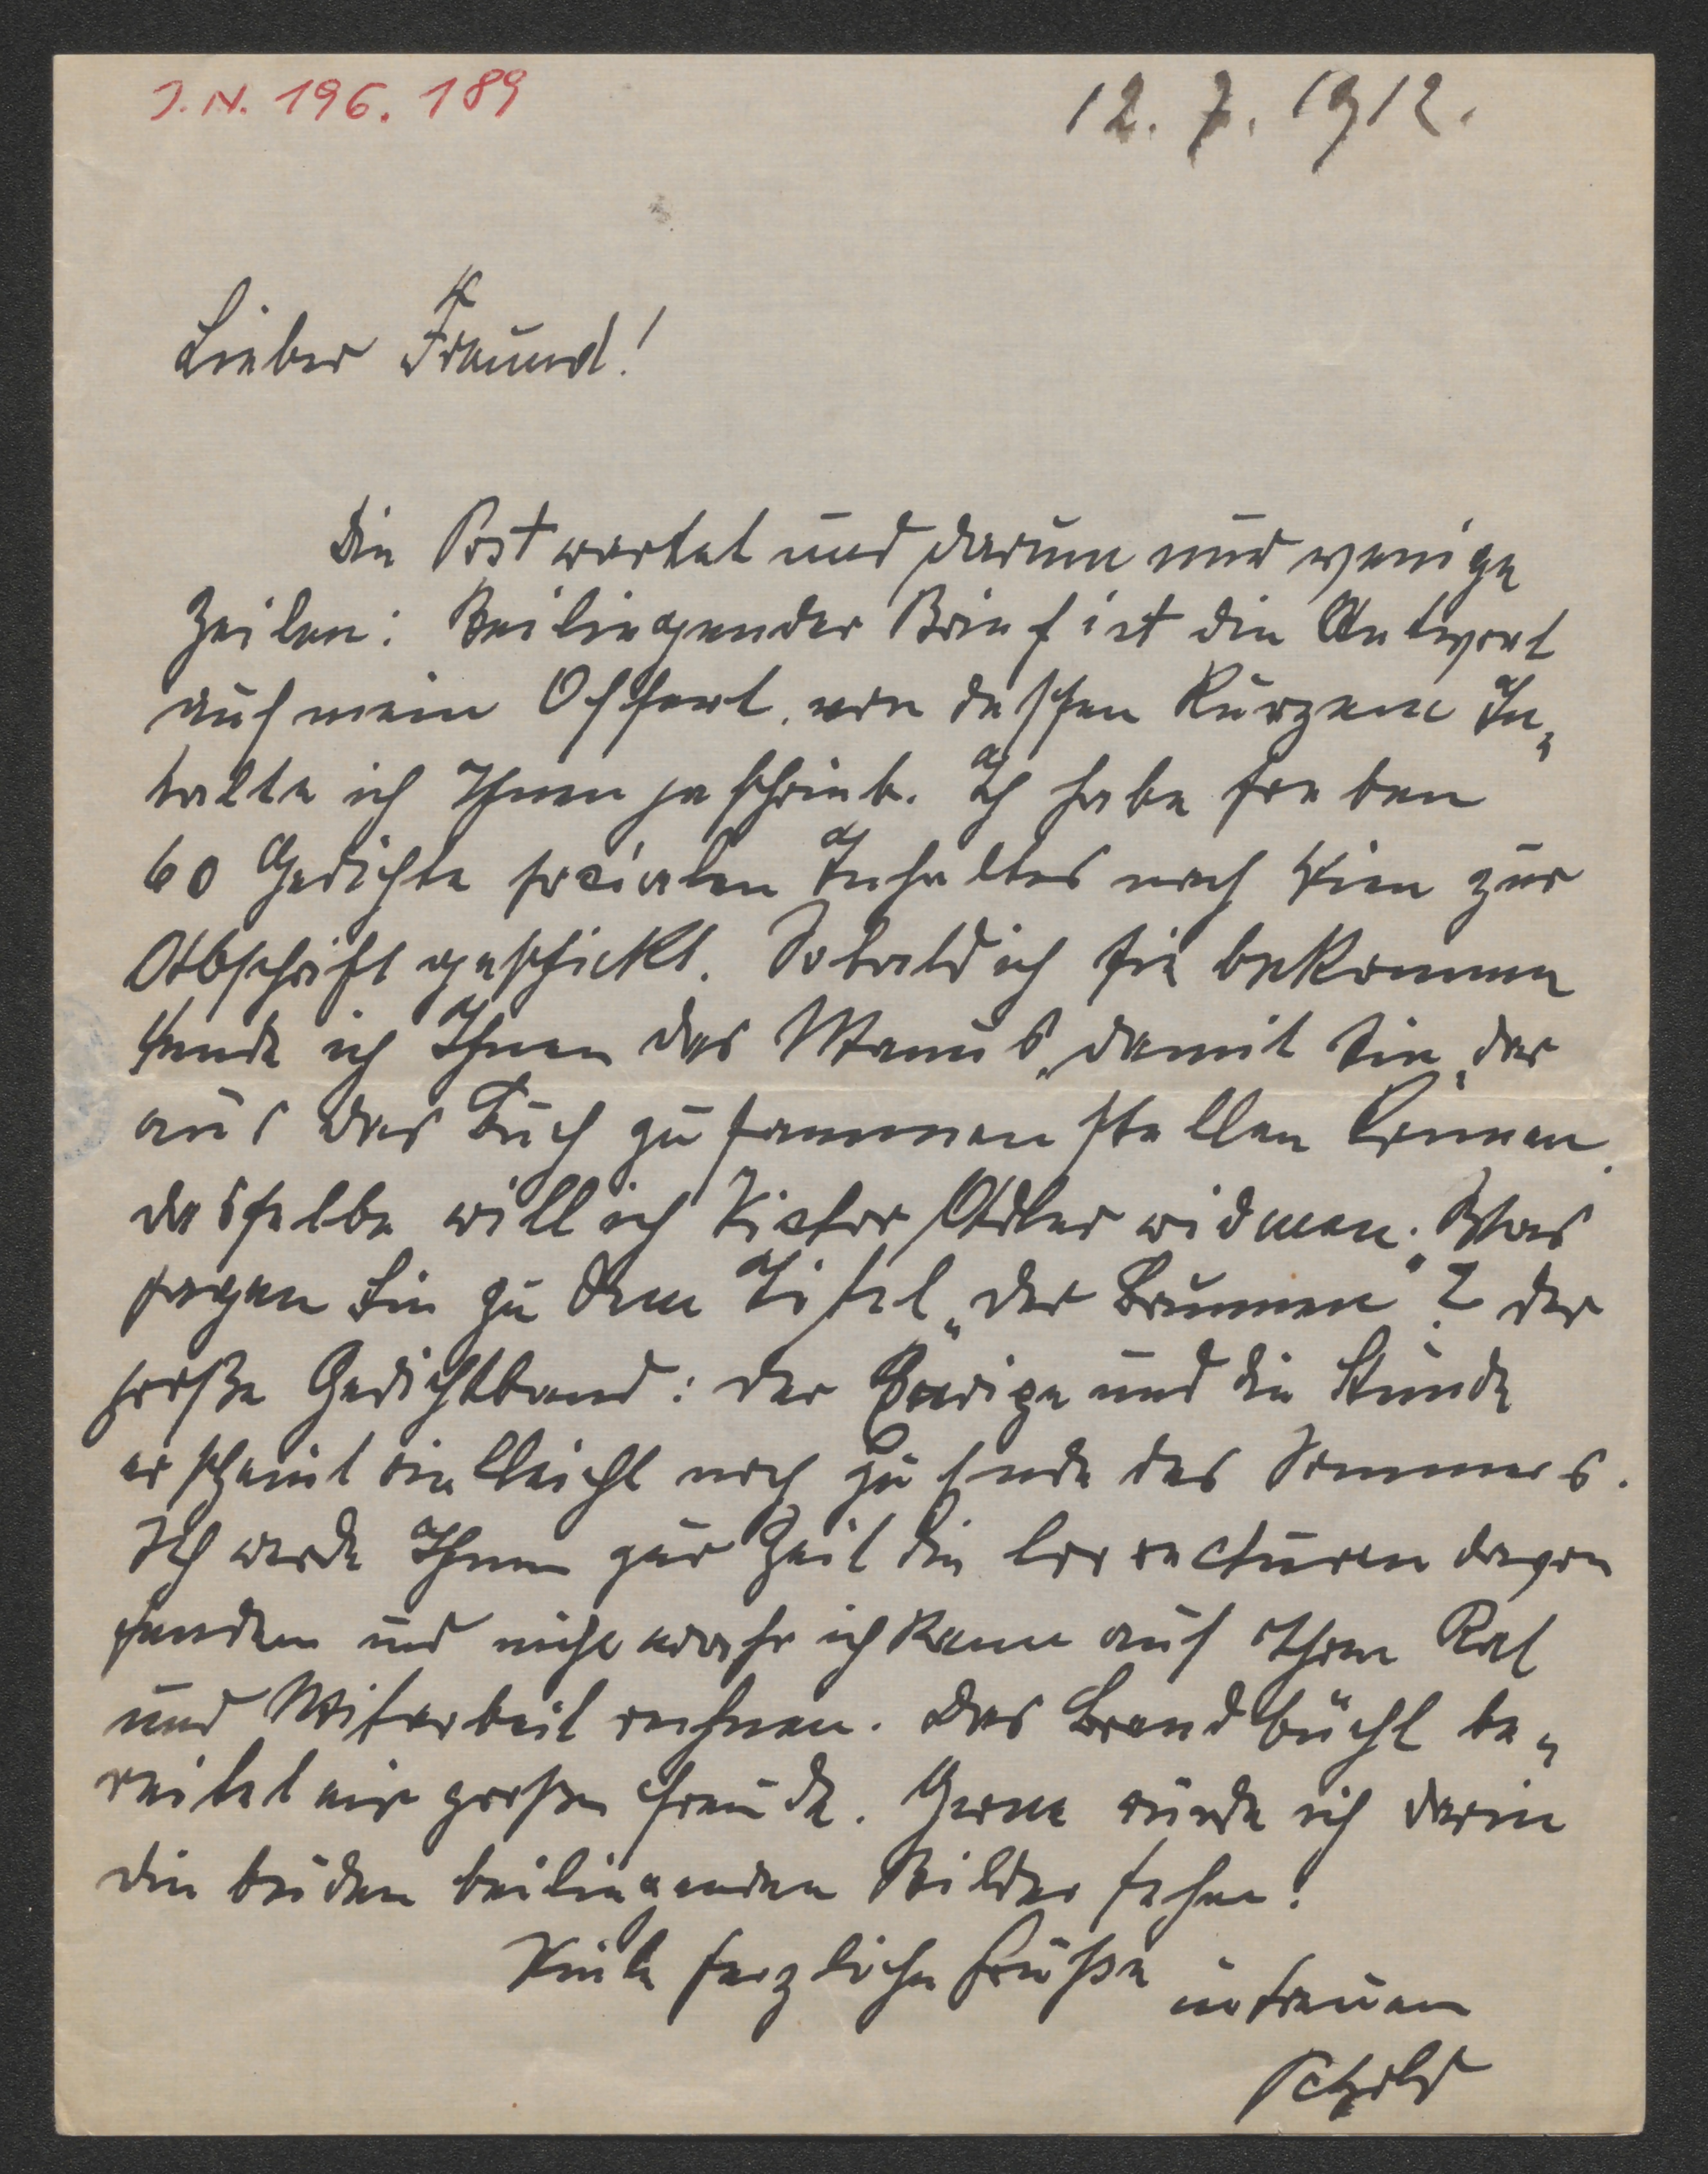 J.N. 196.189
12.7.1912.
Lieber Freund!
Die Post wartet und darum nur wenige
Zeilen: Beiliegender Brief ist die Antwort
auf mein Offert, von dessen kurzem In„
halte ich Ihnen ja schrieb. Ich habe soeben
60 Gedichte socialen Inhaltes nach Wien zur
Abschrift geschickt. Sobald ich sie bekomme
sende ich Ihnen das Manus, damit Sie dar
aus das Buch zusammenstellen können.
dasselbe will ich Victor Adler widmen. Was
sagen Sie zu dem Titel „der Brunnen“? der
große Gedichtband: der Ewige und die Stunde
erscheint vielleicht noch zu Ende des Sommers.
Ich werde Ihnen zur Zeit die Correcturen davon
senden und nicht wahr ich kann auf Ihren Rat
und Mitarbeit rechnen. Das Bändbüchl be„
reitet mir großen Freude. Gerne würde ich darin
die beiden beiliegenden Bilder sehen.
Viele herzliche Grüße in treuen